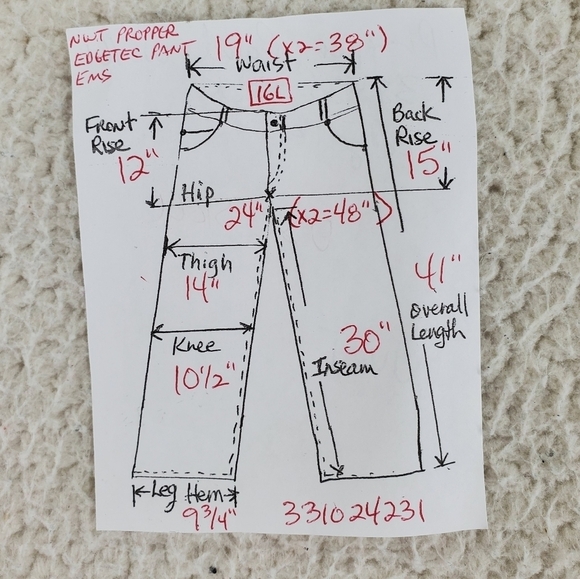 NWT PROPPER
EDGETEC PANT
EMS
19" (x2=38")
Waist
16L
Front
Rise
12"
Back
Rise
15"
Hip
24" (x2=48")
Thigh
14"
41"
Overall
Length
Knee
10 1/2"
30"
Inseam
Leg Hem
9 3/4"
331024231